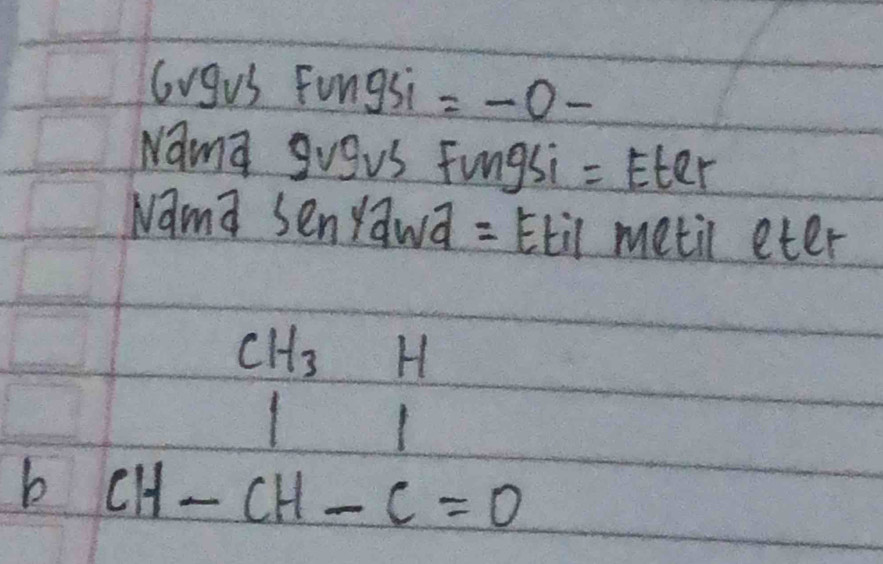 Gugus Fungsi = -O-
Nama gugus Fungsi = Eter
Nama senyawa = Etil metil eter
CH₃ H
| |
b CH - CH - C = O